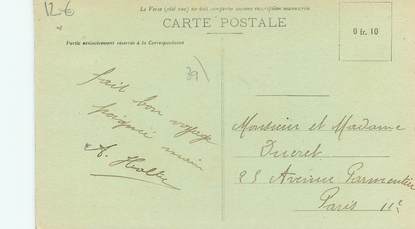 12-6
Le Verso (côté vue) ne doit comporter aucune inscription manuscrite
CARTE POSTALE
Partie exclusivement réservée à la Correspondance
0 fr. 10
39
fait bon voyage
poignée main
A.
Monsieur et Madame
Ducret
25 Avenue Parmentier
Paris 11e